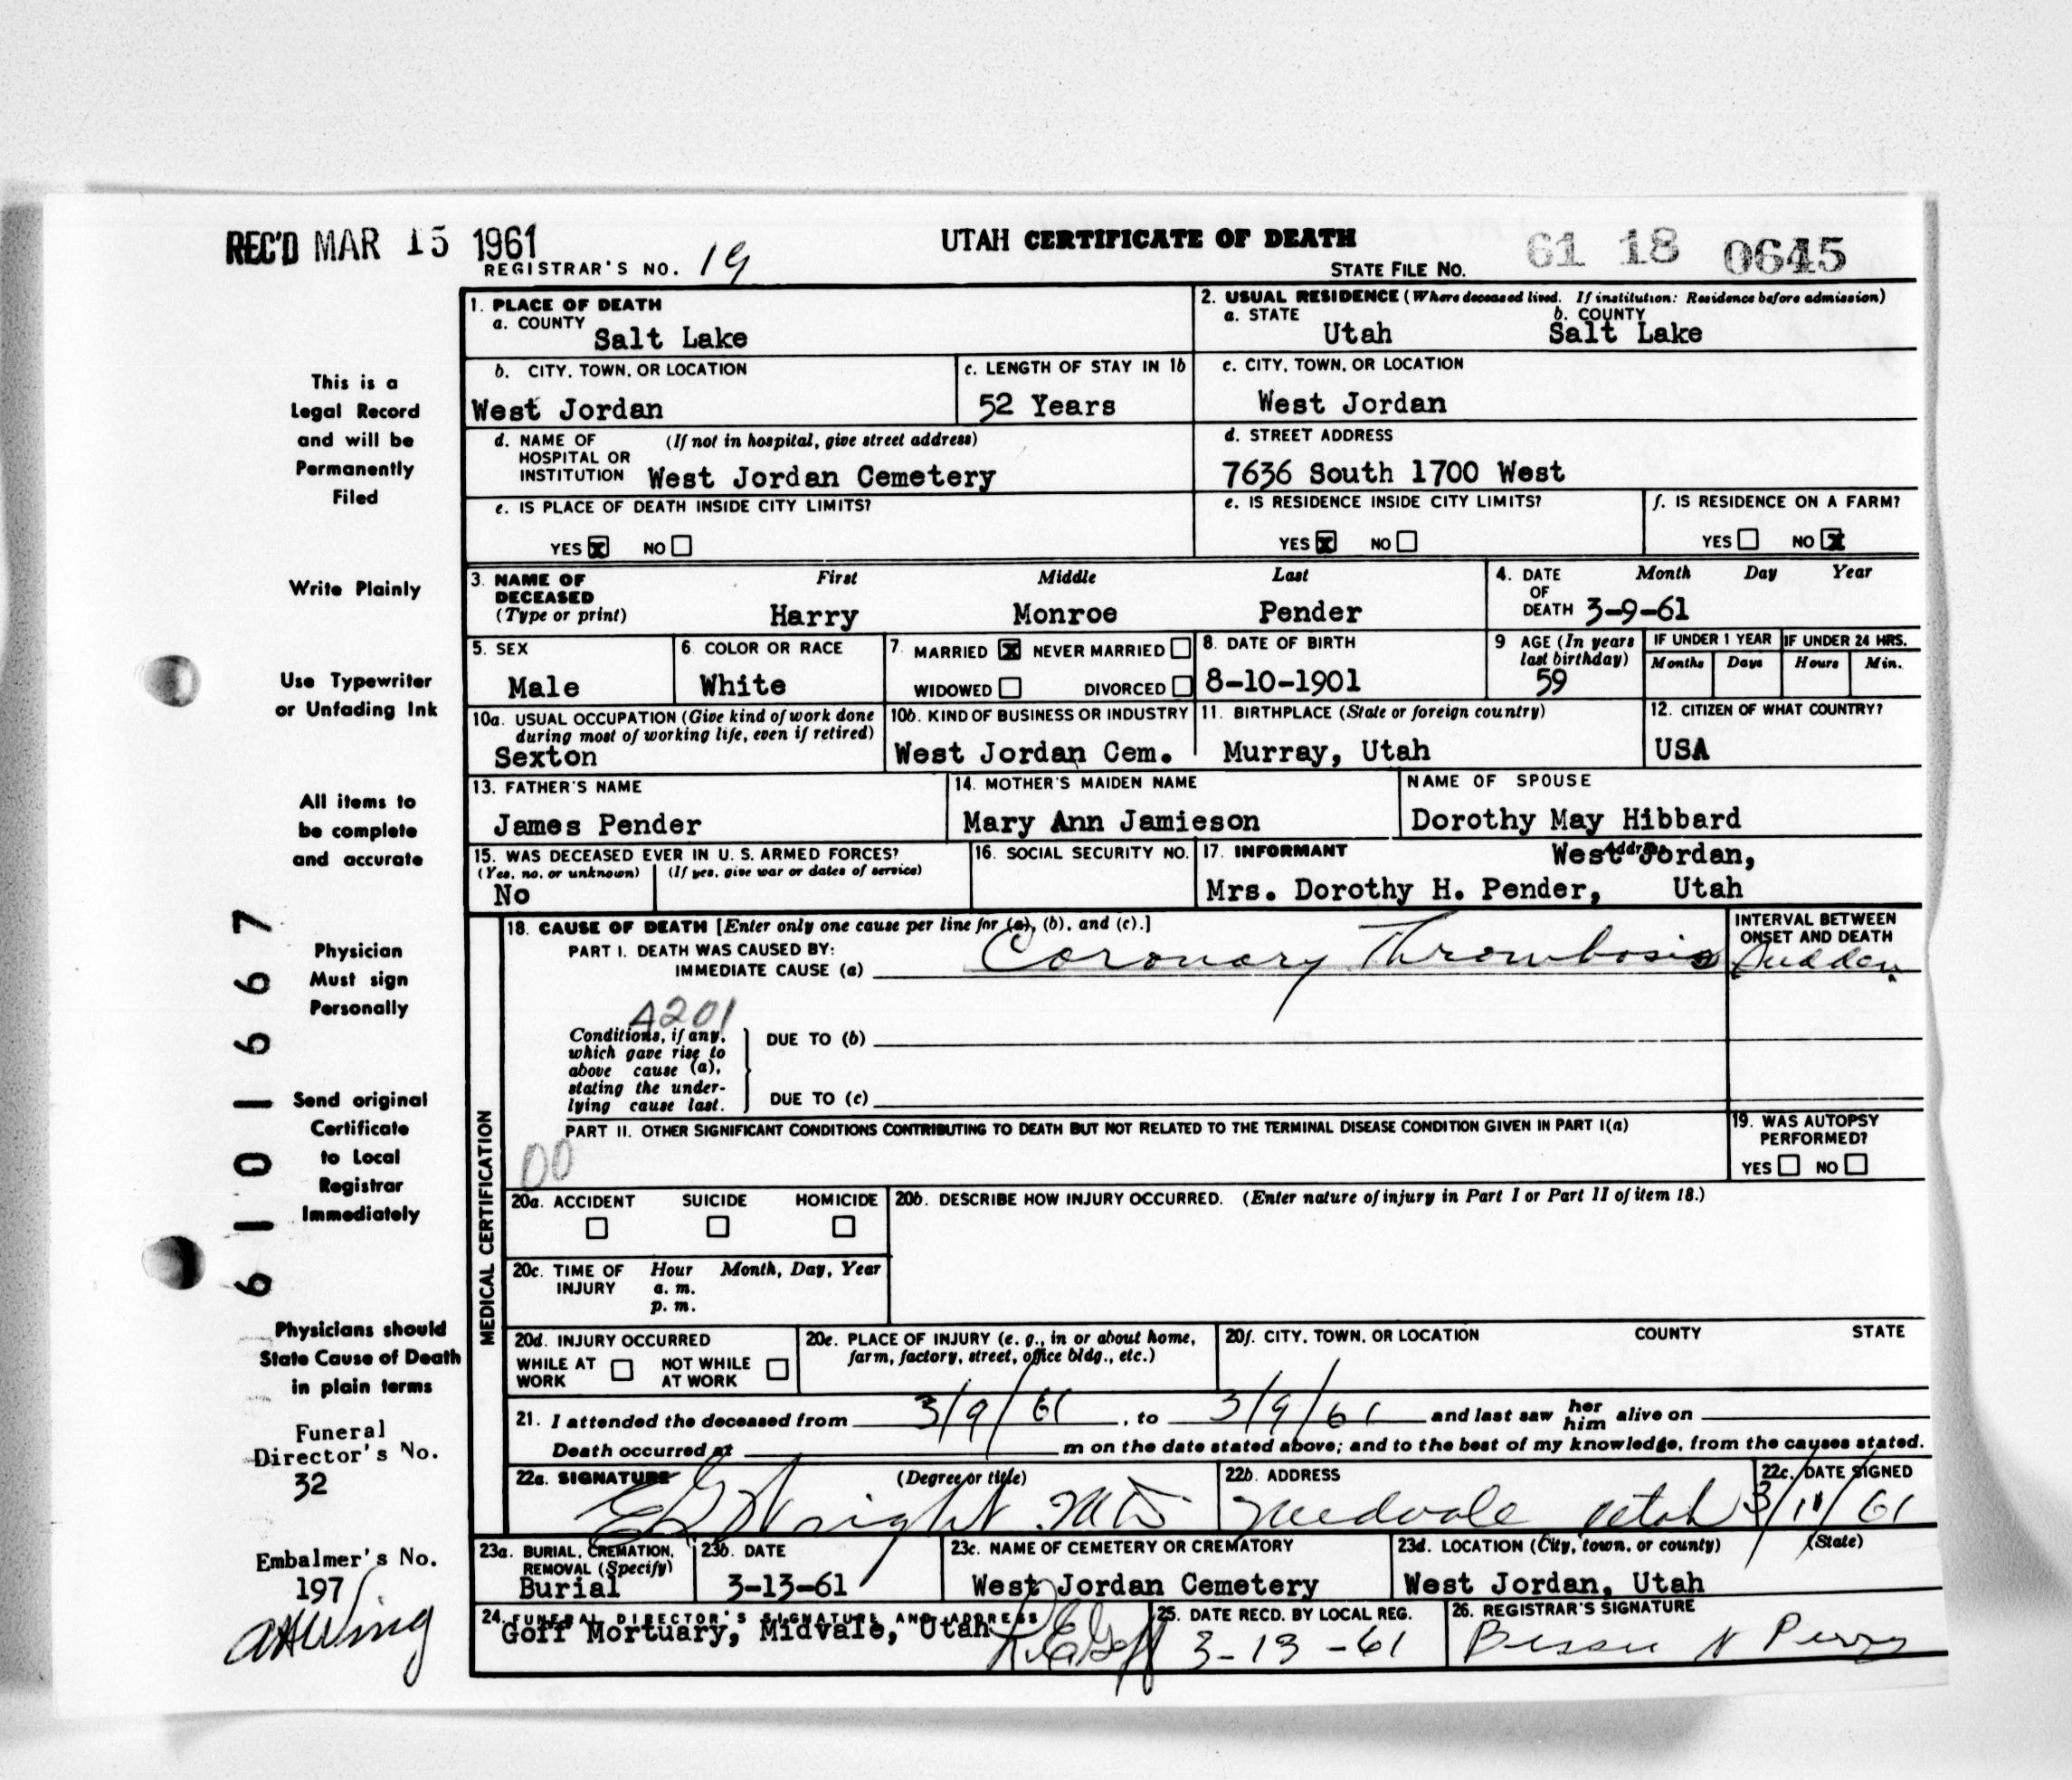 REC'D MAR 15 1961
REGISTRAR'S NO. 19
UTAH CERTIFICATE OF DEATH
STATE FILE NO. 61 18 0645
This is a
Legal Record
and will be
Permanently
Filed
Write Plainly
Use Typewriter
or Unfading Ink
All items to
be complete
and accurate
Physician
Must sign
Personally
Send original
Certificate
to Local
Registrar
Immediately
Physicians should
State Cause of Death
in plain terms
Funeral
Director's No.
32
Embalmer's No.
197
61101667
1. PLACE OF DEATH
a. COUNTY
Salt Lake
2. USUAL RESIDENCE (Where deceased lived. If institution: Residence before admission)
a. STATE b. COUNTY
Utah Salt Lake
b. CITY, TOWN, OR LOCATION
West Jordan
c. LENGTH OF STAY IN 1b
52 Years
c. CITY, TOWN, OR LOCATION
West Jordan
d. NAME OF (If not in hospital, give street address)
HOSPITAL OR
INSTITUTION West Jordan Cemetery
d. STREET ADDRESS
7636 South 1700 West
e. IS PLACE OF DEATH INSIDE CITY LIMITS?
YES x NO
e. IS RESIDENCE INSIDE CITY LIMITS?
YES x NO
f. IS RESIDENCE ON A FARM?
YES NO x
3. NAME OF First Middle Last
DECEASED
(Type or print) Harry Monroe Pender
4. DATE Month Day Year
OF
DEATH 3-9-61
5. SEX
Male
6. COLOR OR RACE
White
7. MARRIED x NEVER MARRIED
WIDOWED DIVORCED
8. DATE OF BIRTH
8-10-1901
9 AGE (In years
last birthday)
59
IF UNDER 1 YEAR IF UNDER 24 HRS.
Months Days Hours Min.
10a. USUAL OCCUPATION (Give kind of work done
during most of working life, even if retired)
Sexton
10b. KIND OF BUSINESS OR INDUSTRY
West Jordan Cem.
11. BIRTHPLACE (State or foreign country)
Murray, Utah
12. CITIZEN OF WHAT COUNTRY?
USA
13. FATHER'S NAME
James Pender
14. MOTHER'S MAIDEN NAME
Mary Ann Jamieson
NAME OF SPOUSE
Dorothy May Hibbard
15. WAS DECEASED EVER IN U. S. ARMED FORCES?
(Yes, no, or unknown) (If yes, give war or dates of service)
No
16. SOCIAL SECURITY NO.
17. INFORMANT Address
West Jordan,
Mrs. Dorothy H. Pender, Utah
MEDICAL CERTIFICATION
18. CAUSE OF DEATH [Enter only one cause per line for (a), (b), and (c).]
PART I. DEATH WAS CAUSED BY:
IMMEDIATE CAUSE (a) Coronary Thrombosis
INTERVAL BETWEEN
ONSET AND DEATH
Sudden
A201
Conditions, if any,
which gave rise to
above cause (a),
stating the under-
lying cause last.
DUE TO (b)
DUE TO (c)
PART II. OTHER SIGNIFICANT CONDITIONS CONTRIBUTING TO DEATH BUT NOT RELATED TO THE TERMINAL DISEASE CONDITION GIVEN IN PART I(a)
00
19. WAS AUTOPSY
PERFORMED?
YES NO
20a. ACCIDENT SUICIDE HOMICIDE
20b. DESCRIBE HOW INJURY OCCURRED. (Enter nature of injury in Part I or Part II of item 18.)
20c. TIME OF Hour Month, Day, Year
INJURY a. m.
p. m.
20d. INJURY OCCURRED
WHILE AT NOT WHILE
WORK AT WORK
20e. PLACE OF INJURY (e. g., in or about home,
farm, factory, street, office bldg., etc.)
20f. CITY, TOWN, OR LOCATION COUNTY STATE
21. I attended the deceased from 3/9/61, to 3/9/61 and last saw her him alive on
Death occurred at m on the date stated above; and to the best of my knowledge, from the causes stated.
22a. SIGNATURE (Degree or title)
Wright MD
22b. ADDRESS
Midvale Utah
22c. DATE SIGNED
3/11/61
23a. BURIAL, CREMATION,
REMOVAL (Specify)
Burial
23b. DATE
3-13-61
23c. NAME OF CEMETERY OR CREMATORY
West Jordan Cemetery
23d. LOCATION (City, town, or county) (State)
West Jordan, Utah
24. FUNERAL DIRECTOR'S SIGNATURE AND ADDRESS
Goff Mortuary, Midvale, Utah
25. DATE RECD. BY LOCAL REG.
3-13-61
26. REGISTRAR'S SIGNATURE